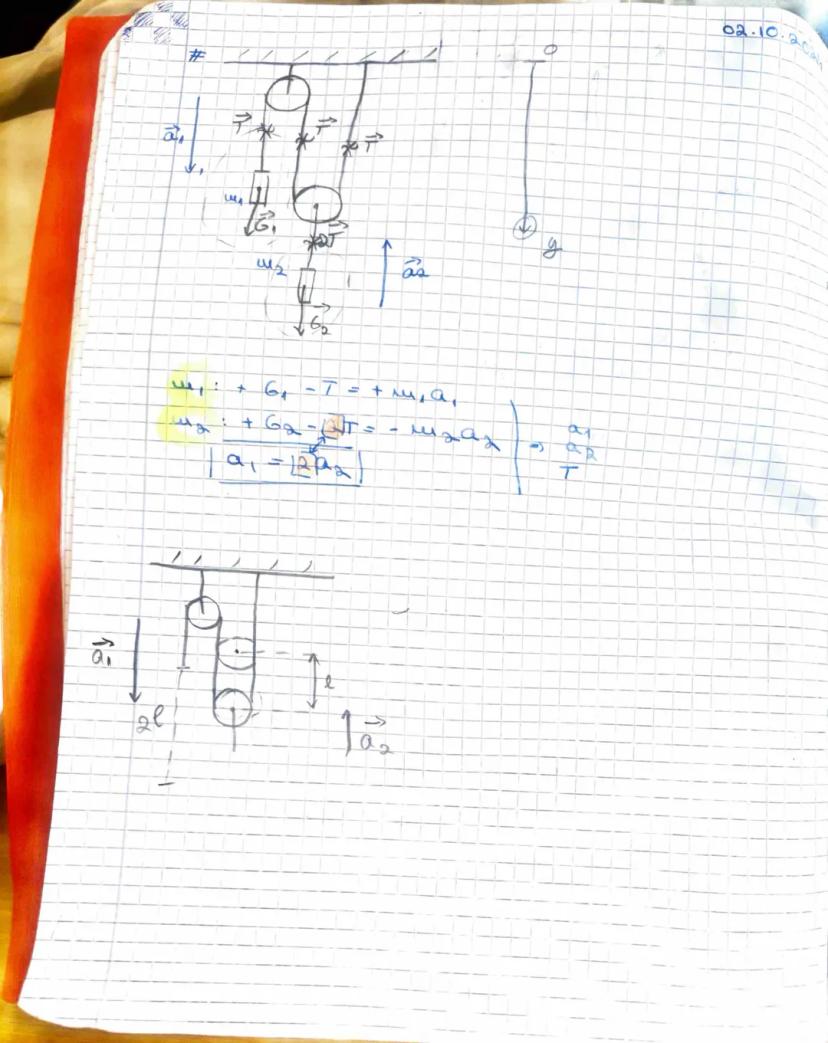 02.10.202
#
O
T T T
a₁
m₁
G₁
2T
m₂
a₂
G₂
y
m₁: + G₁ - T = + m₁a₁
m₂: + G₂ - 2T = - m₂a₂
a₁ = 2a₂
⇒ a₁
a₂
T
a₁
l
2l
a₂